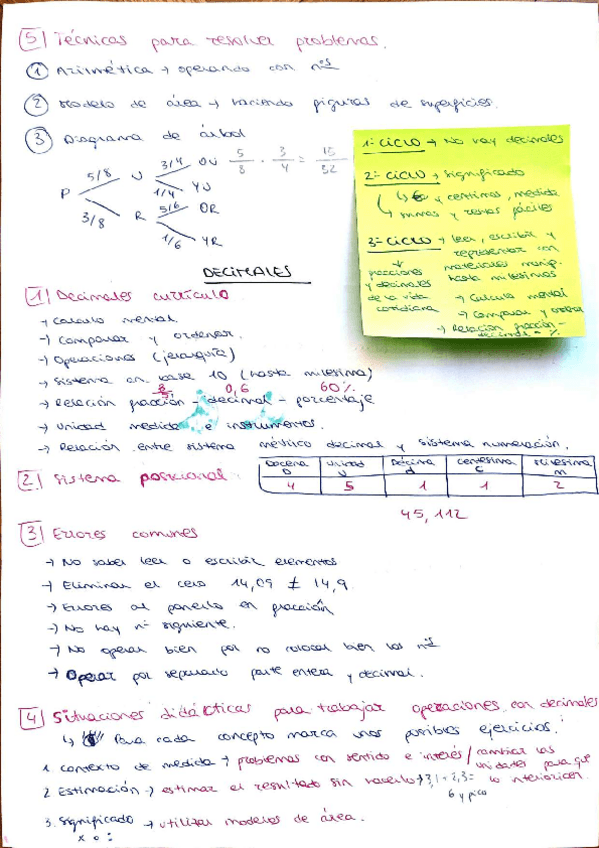 5 Técnicas para resolver problemas.
1 Aritmética → operando con nºs
2 Modelo de área → haciendo figuras de superficies.
3 Diagrama de árbol
P 5/8 U 3/4 OU 5/8 · 3/4 = 15/32
1/4 YU
3/8 R 5/6 OR
1/6 YR
1º CICLO → No hay decimales
2º CICLO → Significado
↳ € y centimos, medida
↳ sumas y restas fáciles
3º CICLO → leer, escribir y
representar con
materiales manip.
hasta milésimas
fracciones
y decimales
de la vida
cotidiana
→ Calculo mental
→ Comparar y ordenar
→ Relación fracción-
decimal = %
DECIMALES
1 Decimales currículo
→ Calculo mental.
→ Comparar y ordenar.
→ Operaciones (jerarquía)
→ Sistema en base 10 (hasta milésima)
0,6 60%
→ Relación fracción - decimal - porcentaje
→ Unidad medida e instrumentos.
→ Relación entre sistema métrico decimal y sistema numeración.
2 Sistema posicional:
Decena D Unidad U Décima d Centésima c Milésima m
4 5 1 1 2
45,112
3 Errores comunes
→ No saber leer o escribir elementos
→ Eliminar el cero 14,09 ≠ 14,9
→ Errores al ponerlo en fracción
→ No hay nº siguiente.
→ No operar bien por no colocar bien los nºs
→ Operar por separado parte entera y decimal.
4 Situaciones didácticas para trabajar operaciones con decimales
↳ Para cada concepto marca unos posibles ejercicios:
1 contexto de medida → problemas con sentido e interés / cambiar las
unidades para que
lo interioricen.
2 Estimación → estimar el resultado sin hacerlo → 3,1 + 2,3 =
6 y pico
3. Significado → utilizar modelos de área.
x o :